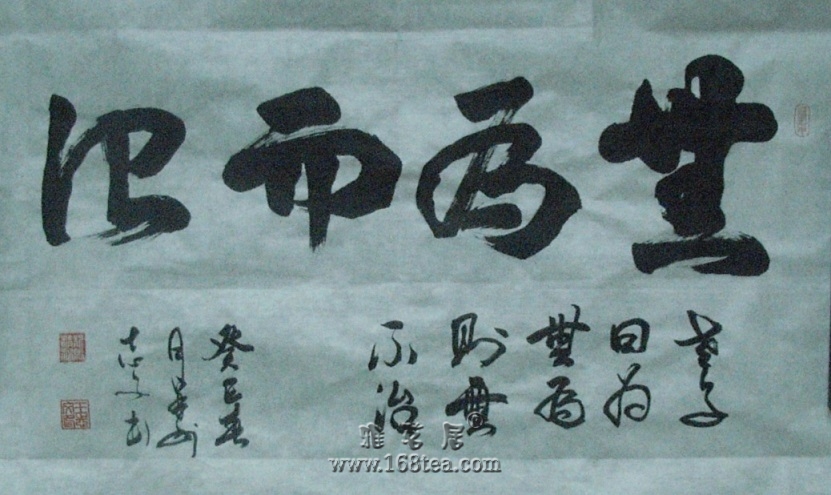 無為而治
老子
曰為
無為
則無
不治
癸巳春
月
志文书
雅茗居
www.168tea.com